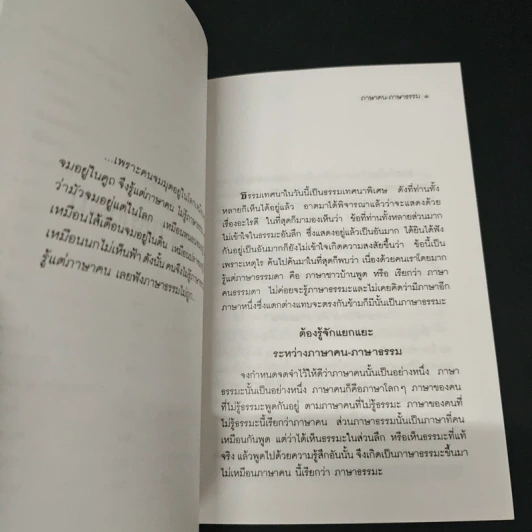 ...เพราะคนจมมุดอยู่ในโลก
จมอยู่ในคูถ จึงรู้แต่ภาษาคน ไม่รู้ภาษา
ว่ามัวจมอยู่แต่ในโลก เหมือน
เหมือนไส้เดือนจมอยู่ในดิน เหมือน
เหมือนนกไม่เห็นฟ้า ดังนั้น คนจึง
รู้แต่ภาษาคน เลยฟังภาษาธรรมไม่ถูก...
ภาษาคน-ภาษาธรรม ๑
ธรรมเทศนาในวันนี้เป็นธรรมเทศนาพิเศษ ดังที่ท่านทั้ง
หลายก็เห็นได้อยู่แล้ว อาตมาได้พิจารณาแล้วว่าจะแสดงด้วย
เรื่องอะไรดี ในที่สุดก็มามองเห็นว่า ข้อที่ท่านทั้งหลายส่วนมาก
ไม่เข้าใจในธรรมะอันลึก ซึ่งแสดงอยู่แล้วเป็นอันมาก ได้ยินได้ฟัง
กันอยู่เป็นอันมากก็ยังไม่เข้าใจเกิดความสงสัยขึ้นว่า ข้อนี้เป็น
เพราะเหตุไร ค้นไปค้นมาในที่สุดก็พบว่า เนื่องด้วยคนเราโดยมาก
รู้แต่ภาษาธรรมดา คือ ภาษาชาวบ้านพูด หรือ เรียกว่า ภาษา
คนธรรมดา ไม่ค่อยจะรู้ภาษาธรรมะและไม่เคยคิดว่ามีภาษาอีก
ภาษาหนึ่งซึ่งแตกต่างแทบจะตรงกันข้ามก็มีนั้นเป็นภาษาธรรมะ
ต้องรู้จักแยกแยะ
ระหว่างภาษาคน-ภาษาธรรม
จงกำหนดจดจำไว้ให้ดีว่าภาษาคนนั้นเป็นอย่างหนึ่ง ภาษา
ธรรมะนั้นเป็นอย่างหนึ่ง ภาษาคนก็คือภาษาโลกๆ ภาษาของคน
ที่ไม่รู้ธรรมะพูดกันอยู่ ตามภาษาคนที่ไม่รู้ธรรมะ ภาษาของคนที่
ไม่รู้ธรรมะนี้เรียกว่าภาษาคน ส่วนภาษาธรรมะนั้นเป็นภาษาที่คน
เหมือนกันพูด แต่ว่าได้เห็นธรรมะในส่วนลึก หรือเห็นธรรมะที่แท้
จริง แล้วพูดไปด้วยความรู้สึกอันนั้น จึงเกิดเป็นภาษาธรรมะขึ้นมา
ไม่เหมือนภาษาคน นี้เรียกว่า ภาษาธรรมะ